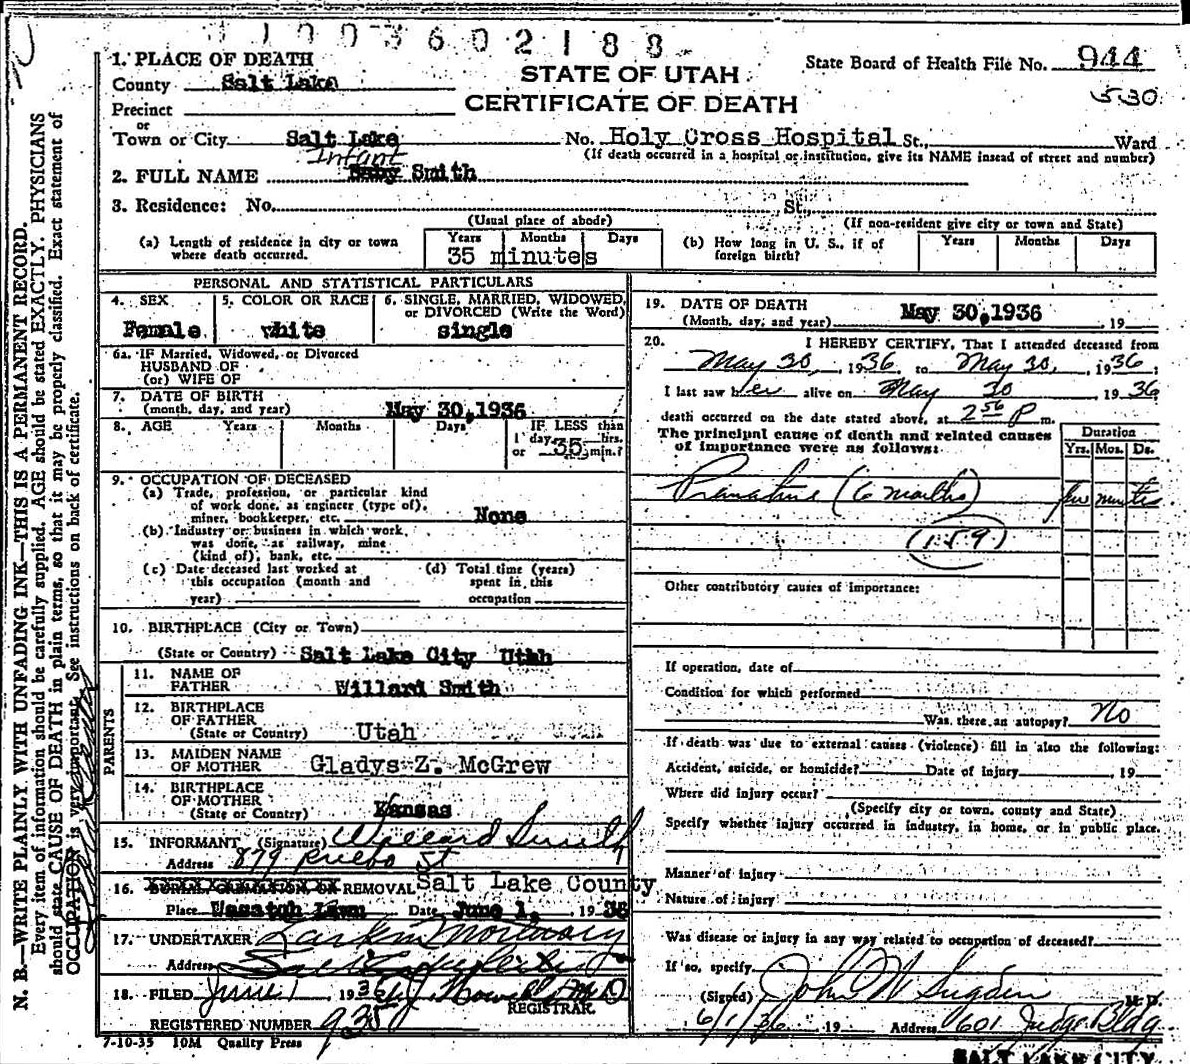 1003602188
1. PLACE OF DEATH
County Salt Lake
Precinct
or
Town or City Salt Lake
STATE OF UTAH
CERTIFICATE OF DEATH
State Board of Health File No. 944
530
No. Holy Cross Hospital St., Ward
(If death occurred in a hospital or institution, give its NAME instead of street and number)
Infant
2. FULL NAME Baby Smith
3. Residence: No. St.,
(Usual place of abode) (If non-resident give city or town and State)
(a) Length of residence in city or town where death occurred. Years Months Days
35 minutes
(b) How long in U. S., if of foreign birth? Years Months Days
PERSONAL AND STATISTICAL PARTICULARS
4. SEX 5. COLOR OR RACE 6. SINGLE, MARRIED, WIDOWED, or DIVORCED (Write the Word)
Female white single
6a. IF Married, Widowed, or Divorced
HUSBAND OF
(or) WIFE OF
7. DATE OF BIRTH
(month, day, and year) May 30, 1936
8. AGE Years Months Days IF LESS than
1 day, hrs.
or 35 min.?
9. OCCUPATION OF DECEASED
(a) Trade, profession, or particular kind
of work done, as engineer (type of),
miner, bookkeeper, etc. None
(b) Industry or business in which work
was done, as railway, mine
(kind of), bank, etc.
(c) Date deceased last worked at
this occupation (month and
year)
(d) Total time (years)
spent in this
occupation
10. BIRTHPLACE (City or Town)
(State or Country) Salt Lake City Utah
PARENTS
11. NAME OF
FATHER Willard Smith
12. BIRTHPLACE
OF FATHER
(State or Country) Utah
13. MAIDEN NAME
OF MOTHER Gladys Z. McGrew
14. BIRTHPLACE
OF MOTHER
(State or Country) Kansas
15. INFORMANT (Signature) Willard Smith
Address 879 Pueblo St
16. BURIAL, CREMATION, OR REMOVAL Salt Lake County
Place Wasatch Lawn Date June 1, 1936
17. UNDERTAKER Larkin Mortuary
Address Salt Lake City
18. FILED June 1 1936
REGISTRAR.
REGISTERED NUMBER 935
7-10-35 10M Quality Press
19. DATE OF DEATH
(Month, day, and year) May 30, 1936, 19
20. I HEREBY CERTIFY, That I attended deceased from
May 30, 1936, to May 30, 1936;
I last saw her alive on May 30 1936
death occurred on the date stated above, at 2 56 P m.
The principal cause of death and related causes
of importance were as follows:
Duration
Yrs. Mos. Ds.
Premature (6 months) few minutes
(159)
Other contributory causes of importance:
If operation, date of
Condition for which performed
Was there an autopsy? No
If death was due to external causes (violence) fill in also the following:
Accident, suicide, or homicide? Date of injury , 19
Where did injury occur?
(Specify city or town, county and State)
Specify whether injury occurred in industry, in home, or in public place.
Manner of injury
Nature of injury
Was disease or injury in any way related to occupation of deceased?
If so, specify
(Signed) John W Sugden M. D.
6/1/36 19 Address 601 Judge Bldg
SALT LAKE CITY
N. B.—WRITE PLAINLY, WITH UNFADING INK—THIS IS A PERMANENT RECORD.
Every item of information should be carefully supplied. AGE should be stated EXACTLY. PHYSICIANS
should state CAUSE OF DEATH in plain terms, so that it may be properly classified. Exact statement of
OCCUPATION is very important. See instructions on back of certificate.